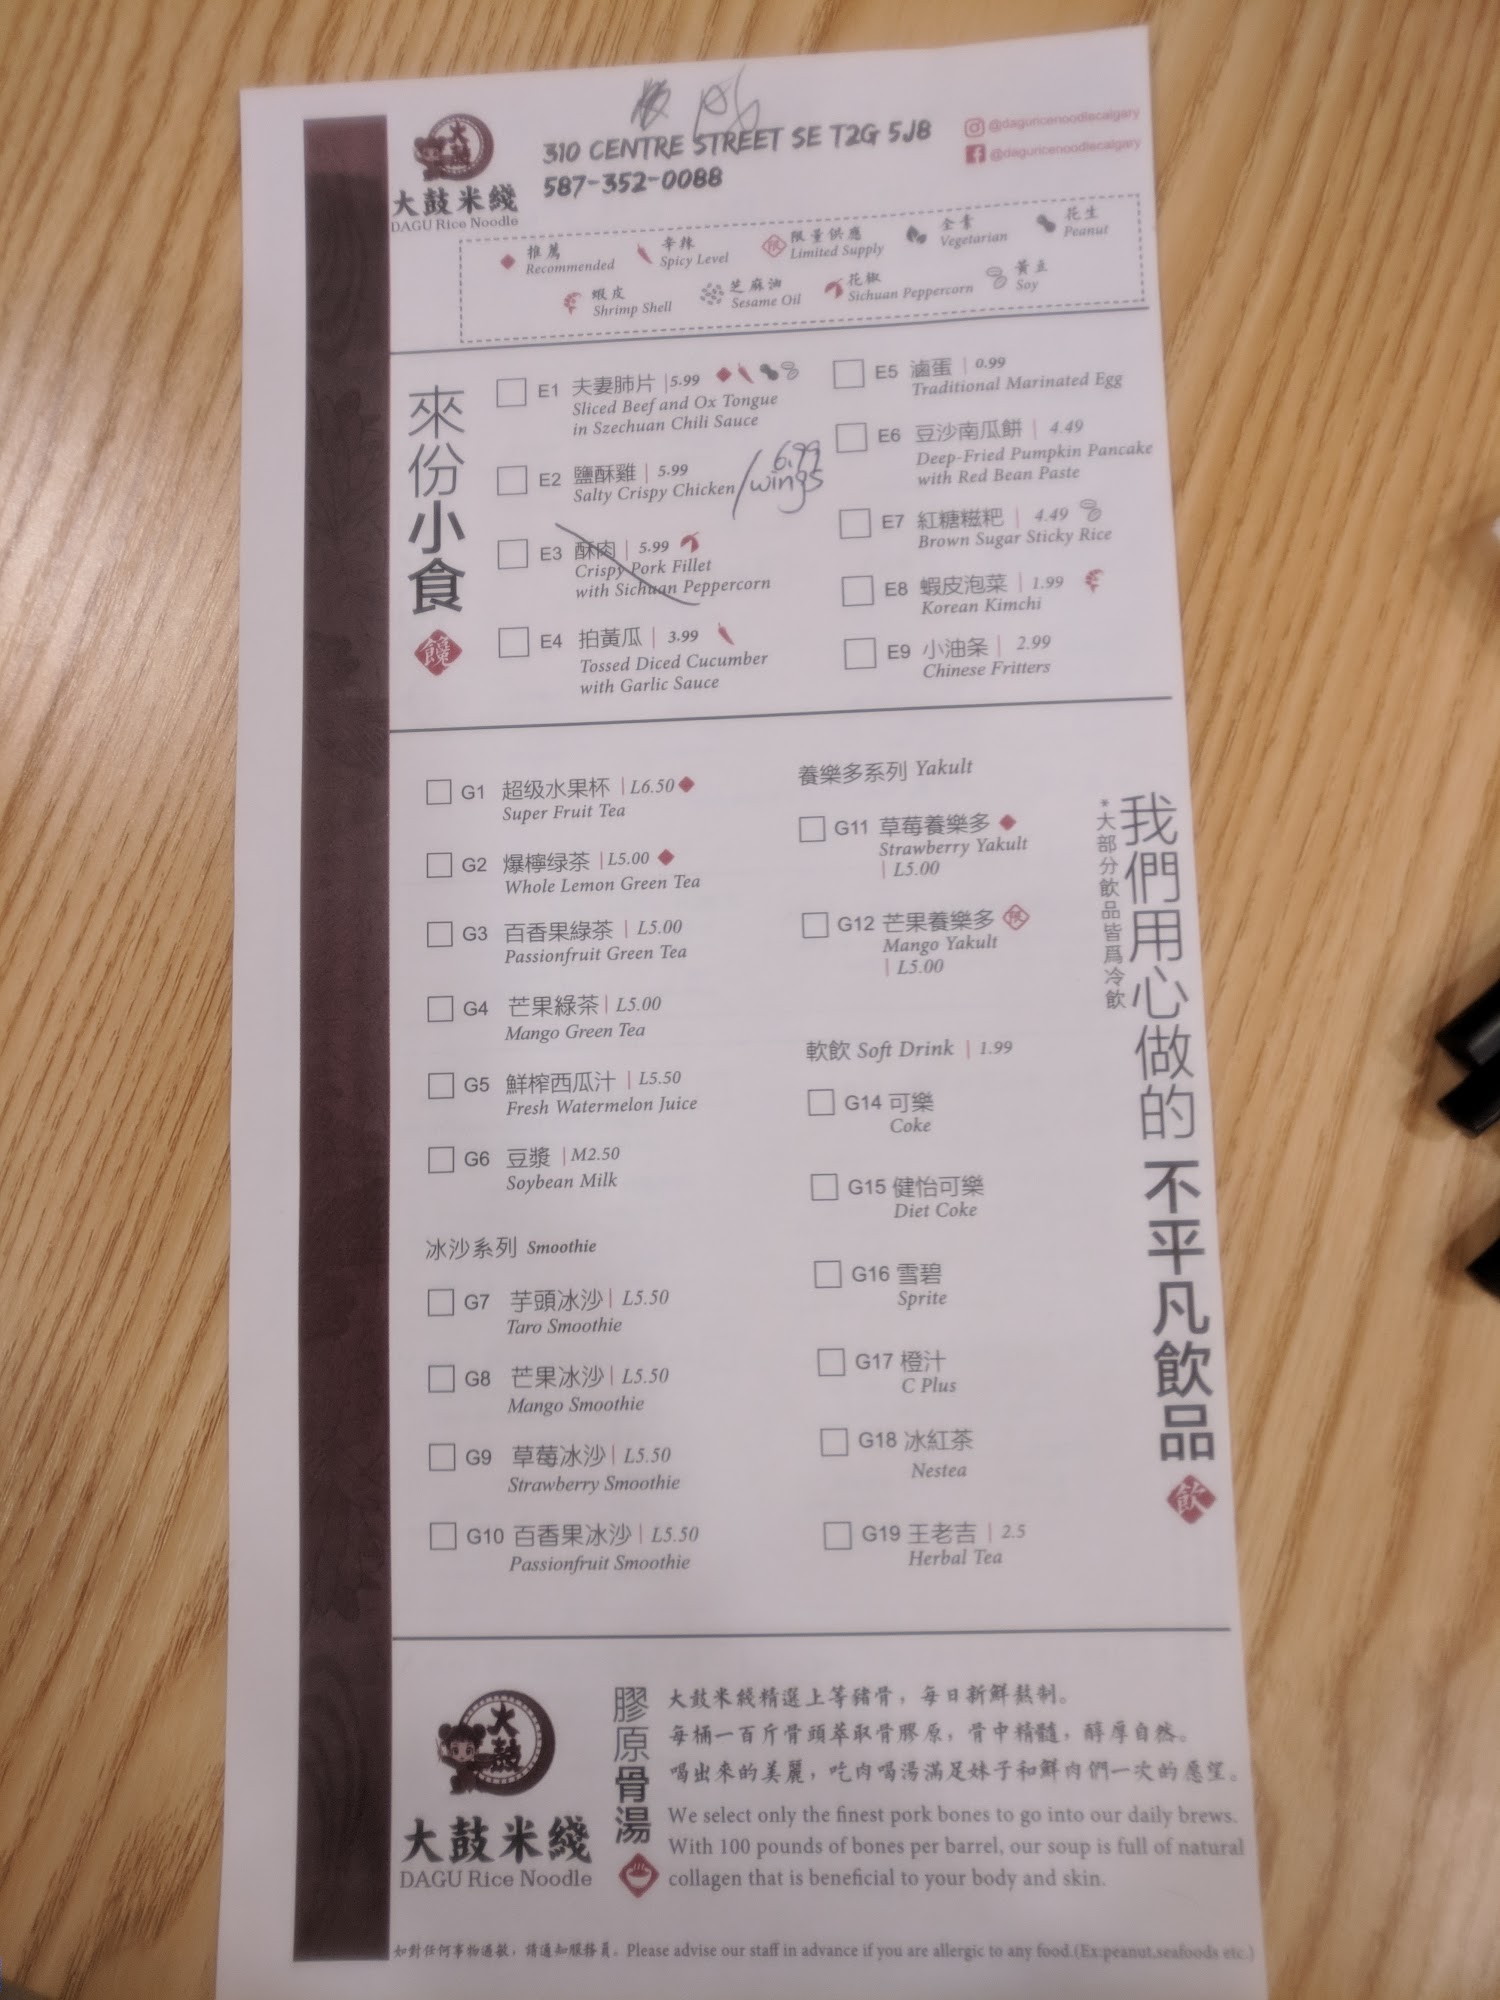 310 CENTRE STREET SE T2G 5J8
587-352-0088
@daguricenoodlecalgary
@daguricenoodlecalgary
大鼓
大鼓米綫
DAGU Rice Noodle
推薦
Recommended
辛辣
Spicy Level
限
限量供應
Limited Supply
全素
Vegetarian
花生
Peanut
蝦皮
Shrimp Shell
芝麻油
Sesame Oil
花椒
Sichuan Peppercorn
黃豆
Soy
來份小食
饞
E1 夫妻肺片 | 5.99
Sliced Beef and Ox Tongue
in Szechuan Chili Sauce
E2 鹽酥雞 | 5.99
Salty Crispy Chicken / wings 6.99
E3 酥肉 | 5.99
Crispy Pork Fillet
with Sichuan Peppercorn
E4 拍黃瓜 | 3.99
Tossed Diced Cucumber
with Garlic Sauce
E5 滷蛋 | 0.99
Traditional Marinated Egg
E6 豆沙南瓜餅 | 4.49
Deep-Fried Pumpkin Pancake
with Red Bean Paste
E7 紅糖糍粑 | 4.49
Brown Sugar Sticky Rice
E8 蝦皮泡菜 | 1.99
Korean Kimchi
E9 小油条 | 2.99
Chinese Fritters
G1 超级水果杯 | L6.50
Super Fruit Tea
G2 爆檸绿茶 | L5.00
Whole Lemon Green Tea
G3 百香果綠茶 | L5.00
Passionfruit Green Tea
G4 芒果綠茶 | L5.00
Mango Green Tea
G5 鮮榨西瓜汁 | L5.50
Fresh Watermelon Juice
G6 豆漿 | M2.50
Soybean Milk
冰沙系列 Smoothie
G7 芋頭冰沙 | L5.50
Taro Smoothie
G8 芒果冰沙 | L5.50
Mango Smoothie
G9 草莓冰沙 | L5.50
Strawberry Smoothie
G10 百香果冰沙 | L5.50
Passionfruit Smoothie
養樂多系列 Yakult
G11 草莓養樂多
Strawberry Yakult
| L5.00
G12 芒果養樂多 限
Mango Yakult
| L5.00
軟飲 Soft Drink | 1.99
G14 可樂
Coke
G15 健怡可樂
Diet Coke
G16 雪碧
Sprite
G17 橙汁
C Plus
G18 冰紅茶
Nestea
G19 王老吉 | 2.5
Herbal Tea
我們用心做的 不平凡飲品
*大部分飲品皆爲冷飲
飲
大鼓
大鼓米綫
DAGU Rice Noodle
膠原骨湯
大鼓米綫精選上等豬骨，每日新鮮熬制。
每桶一百斤骨頭萃取骨膠原，骨中精髓，醇厚自然。
喝出來的美麗，吃肉喝湯滿足妹子和鮮肉們一次的愿望。
We select only the finest pork bones to go into our daily brews.
With 100 pounds of bones per barrel, our soup is full of natural
collagen that is beneficial to your body and skin.
如對任何事物過敏，請通知服務員。Please advise our staff in advance if you are allergic to any food.(Ex:peanut,seafoods etc.)